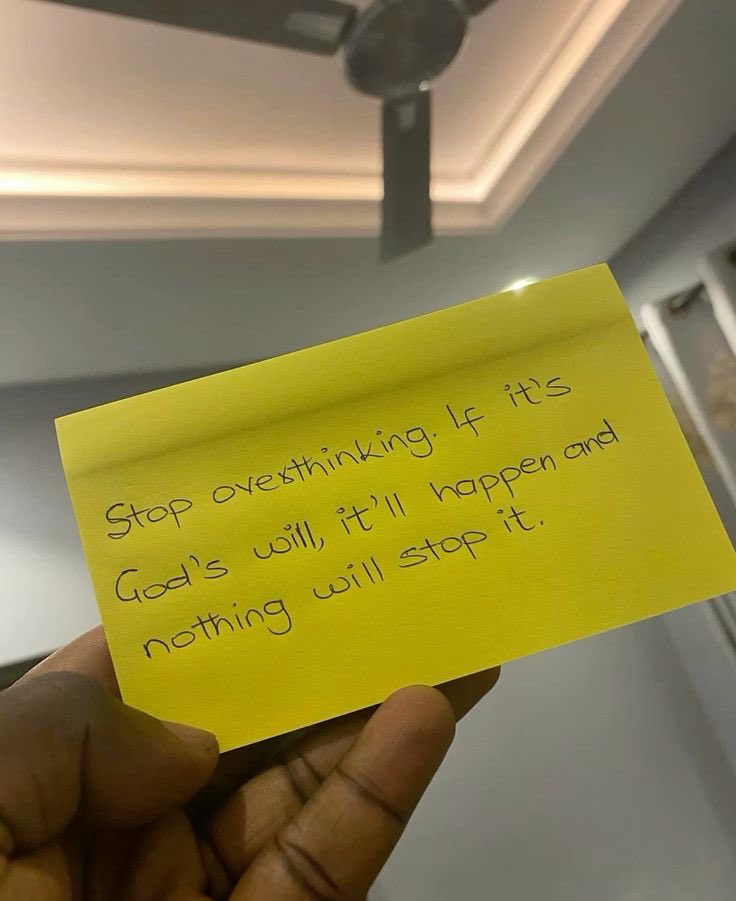 Stop overthinking. If it's
God's will, it'll happen and
nothing will stop it.